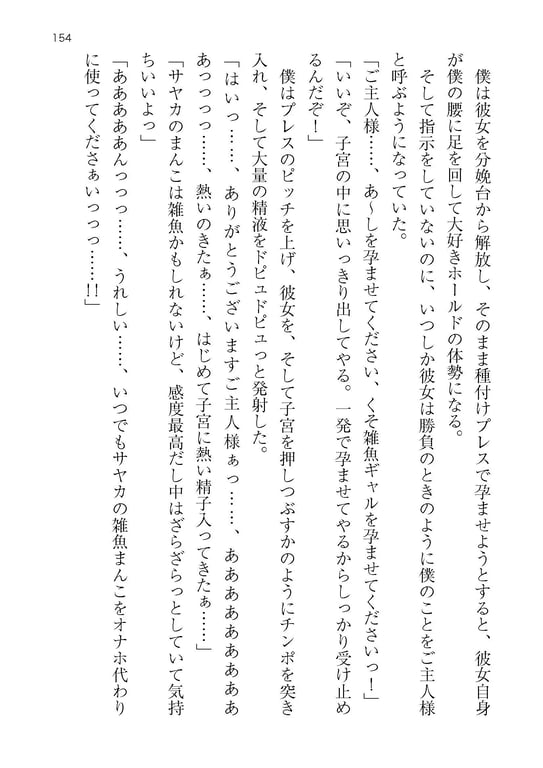 154
僕は彼女を分娩台から解放し、そのまま種付けプレスで孕ませようとすると、彼女自身
が僕の腰に足を回して大好きホールドの体勢になる。
そして指示をしていないのに、いつしか彼女は勝負のときのように僕のことをご主人様
と呼ぶようになっていた。
「ご主人様……、あ〜しを孕ませてください、くそ雑魚ギャルを孕ませてくださいっ！」
「いいぞ、子宮の中に思いっきり出してやる。一発で孕ませてやるからしっかり受け止め
るんだぞ！」
僕はプレスのピッチを上げ、彼女を、そして子宮を押しつぶすかのようにチンポを突き
入れ、そして大量の精液をドピュドピュっと発射した。
「はいっ……、ありがとうございますご主人様ぁっ……、ああああああああ
あっっっっ……、熱いのきたぁ……、はじめて子宮に熱い精子入ってきたぁ……」
「サヤカのまんこは雑魚かもしれないけど、感度最高だし中はざらざらっとしていて気持
ちいいよっ」
「あああああんっっっ……、うれしい……、いつでもサヤカの雑魚まんこをオナホ代わり
に使ってくださぁいっっっ……!!」